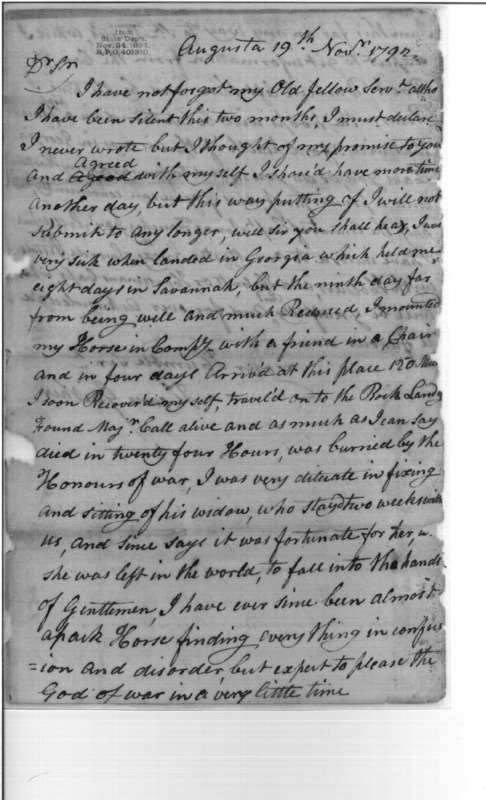 from
State Dept.
Nov. 24, 1934,
Augusta 19th Novr. 1792
Dr Sir
I have not forgot my Old fellow Servt. altho
I have been silent this two months, I must declare
I never wrote but I thought of my promise to you
Agreed
and agreed with my self I shou'd have more time
another day, but this way putting of I will not
submit to any longer, well sir you shall hear, I was
very sick when landed in Georgia which held me
eight days in Savannah, but the ninth day far
from being well and much Reduced, I mounted
my Horse in Compy. with a friend in a Chair
and in four days Arriv'd at this place 120 Miles
I soon Recover'd my self, travel'd on to the Rock Landg
Found Majr. Call alive and as much as I can say
died in twenty four Hours, was burried by the
Honours of war, I was very dilicate in fixing
and sitting of his widow, who stayd two weeks with
us, and since says it was fortunate for her, as
she was left in the world, to fall into the hands
of Gentlemen, I have ever since been almost
a pack Horse finding every thing in confus
=ion and disorder but expect to please the
God of war in a very little time